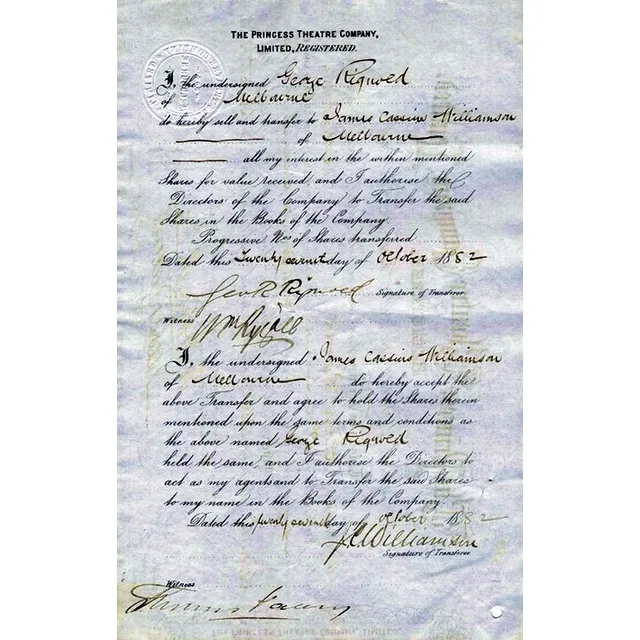 THE PRINCESS THEATRE COMPANY,
LIMITED, REGISTERED.
I, the undersigned George Rignold
of Melbourne
do hereby sell and transfer to James Cassius Williamson
of Melbourne
all my interest in the within mentioned
Shares for value received, and I authorise the
Directors of the Company to Transfer the said
Shares in the Books of the Company.
Progressive Nos of Shares transferred
Dated this twenty seventh day of October 1882
Geo R Rignold Signature of Transferor
Witness Wm
I, the undersigned James Cassius Williamson
of Melbourne do hereby accept the
above Transfer and agree to hold the Shares therein
mentioned upon the same terms and conditions as
the above named George Rignold
held the same, and I authorise the Directors to
act as my agents and to Transfer the said Shares
to my name in the Books of the Company.
Dated this twenty seventh day of October 1882
J C Williamson
Signature of Transferee
Witness
THE PRINCESS THEATRE COMPANY, LIMITED